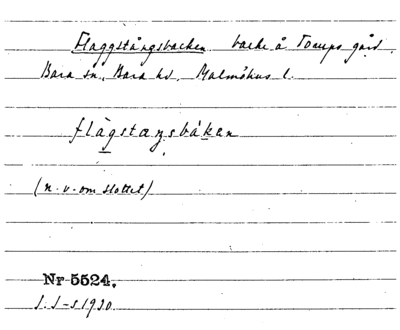 Flaggstångsbacken backe å Torups gård.
Bara sn, Bara hd, Malmöhus l.
flàgstaŋsbákan
(n. v. om slottet)
Nr 5524.
1930.